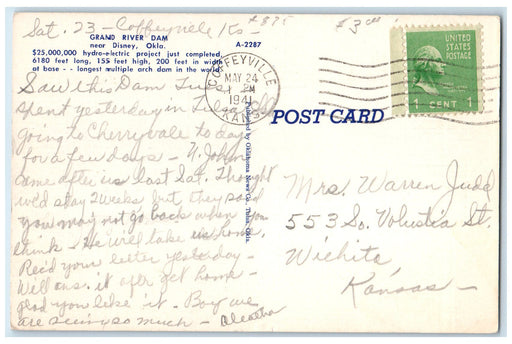 Sat. 23 - Coffeyville Ks -
$875
$3.00
GRAND RIVER DAM
near Disney, Okla.
A-2287
$25,000,000 hydro-electric project just completed,
6180 feet long, 155 feet high, 200 feet in width
at base -- longest multiple arch dam in the world.
Saw this Dam Tues.
spent yesterday in Tulsa
going to Cherryvale to day
for a few days - John
came after us last Sat. Thought
we'd stay 2 weeks but they said
you may not go back when you
think - He will take us home.
Rec'd your letter yesterday -
Will ans. it after get home -
glad you like it. Boy we
are seeing so much -
COFFEYVILLE
MAY 24
1 PM
1941
KANS.
UNITED
STATES
POSTAGE
1 CENT 1
POST CARD
Distributed by Oklahoma News Co. Tulsa, Okla.
Mrs. Warren Judd
553 So. Volustia St.
Wichita
Kansas -